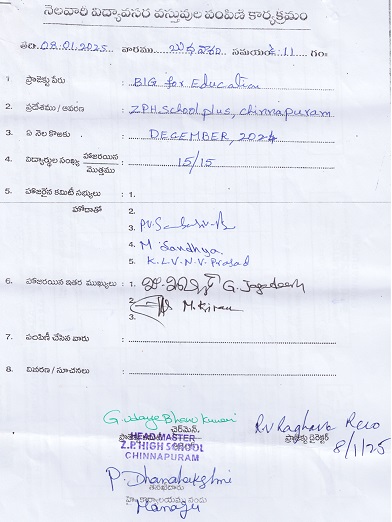 నెలవారీ విద్యావసర వస్తువుల పంపిణీ కార్యక్రమం
తేది: 08.01.2025. వారము బుధవారం సమయం: 11 గం
1. ప్రాజెక్టు పేరు : BIG for Education
2. ప్రదేశము / ఆవరణ : Z.P.H.School plus, chinnapuram
3. ఏ నెల కొరకు : DECEMBER, 2024
4. విద్యార్థుల సంఖ్య హాజరయిన / మొత్తము : 15/15
5. హాజరైన కమిటీ సభ్యులు : 1.
హోదాతో 2.
3.
4. M Sandhya
5. K.L.V.N.V. Prasad
6. హాజరయిన ఇతర ముఖ్యులు : 1. G. Jagadeesh
2. M. Kiran
3.
7. పంపిణీ చేసిన వారు :
8. వివరణ / సూచనలు :
G. Udaya Bhanu Kumari
ఛైర్మెన్,
HEAD MASTER
Z.P.HIGH SCHOOL
CHINNAPURAM
R.V Raghava Rao
ప్రాజెక్టు డైరెక్టర్
8/1/25
P. Dhanalakshmi
Manager